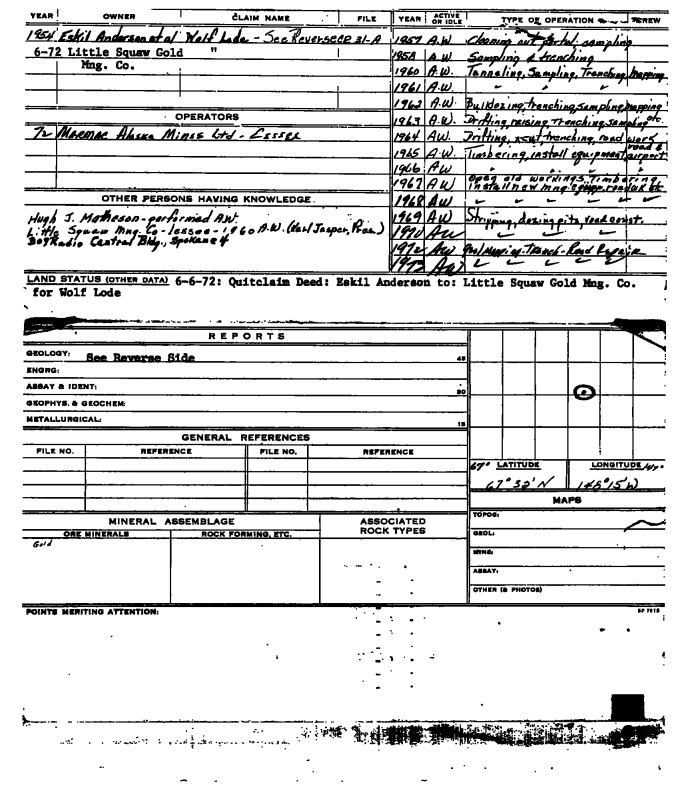 YEAR OWNER CLAIM NAME FILE
1954 Eskil Anderson et al Wolf Lode - See Reverse 31-A
6-72 Little Squaw Gold "
Mng. Co.
OPERATORS
72 Marmac Alaska Mines Ltd - Lessee
OTHER PERSONS HAVING KNOWLEDGE
Hugh J. Matheson - performed A.W.
Little Squaw Mng. Co - lessee - 1960 A.W. (Karl Jasper, Pres.)
309 Radio Central Bldg., Spokane 4
YEAR ACTIVE OR IDLE TYPE OF OPERATION CREW
1957 A.W. Cleaning out portal, sampling
1958 A.W. Sampling & trenching
1960 A.W. Tunneling, Sampling, Trenching, Mapping
1961 A.W. " " " "
1962 A.W. Bulldozing, trenching, sampling, mapping
1963 A.W. Drifting, raising, trenching, sampling etc.
1964 A.W. Drifting, trenching, road work
1965 A.W. Timbering, install equipment, road & airport
1966 A.W. " " " "
1967 A.W. Open old workings, Timbering, install new mng equip. etc
1968 A.W. " " " "
1969 A.W. Stripping, dozing pits, road const.
1970 AW " " "
1972 AW Geol Mapping - Trench - Road Repair
1973 AW " " " "
LAND STATUS (OTHER DATA) 6-6-72: Quitclaim Deed: Eskil Anderson to: Little Squaw Gold Mng. Co.
for Wolf Lode
REPORTS
GEOLOGY: See Reverse Side
45
ENGRG:
ASSAY & IDENT:
30
GEOPHYS. & GEOCHEM:
METALLURGICAL:
15
GENERAL REFERENCES
FILE NO. REFERENCE FILE NO. REFERENCE
67° LATITUDE LONGITUDE
67° 32' N 148° 15' W
MAPS
TOPOG:
GEOL:
MINE:
ASSAY:
OTHER (& PHOTOS)
MINERAL ASSEMBLAGE
ORE MINERALS ROCK FORMING, ETC.
ASSOCIATED
ROCK TYPES
Gold
POINTS MERITING ATTENTION:
SP 7873